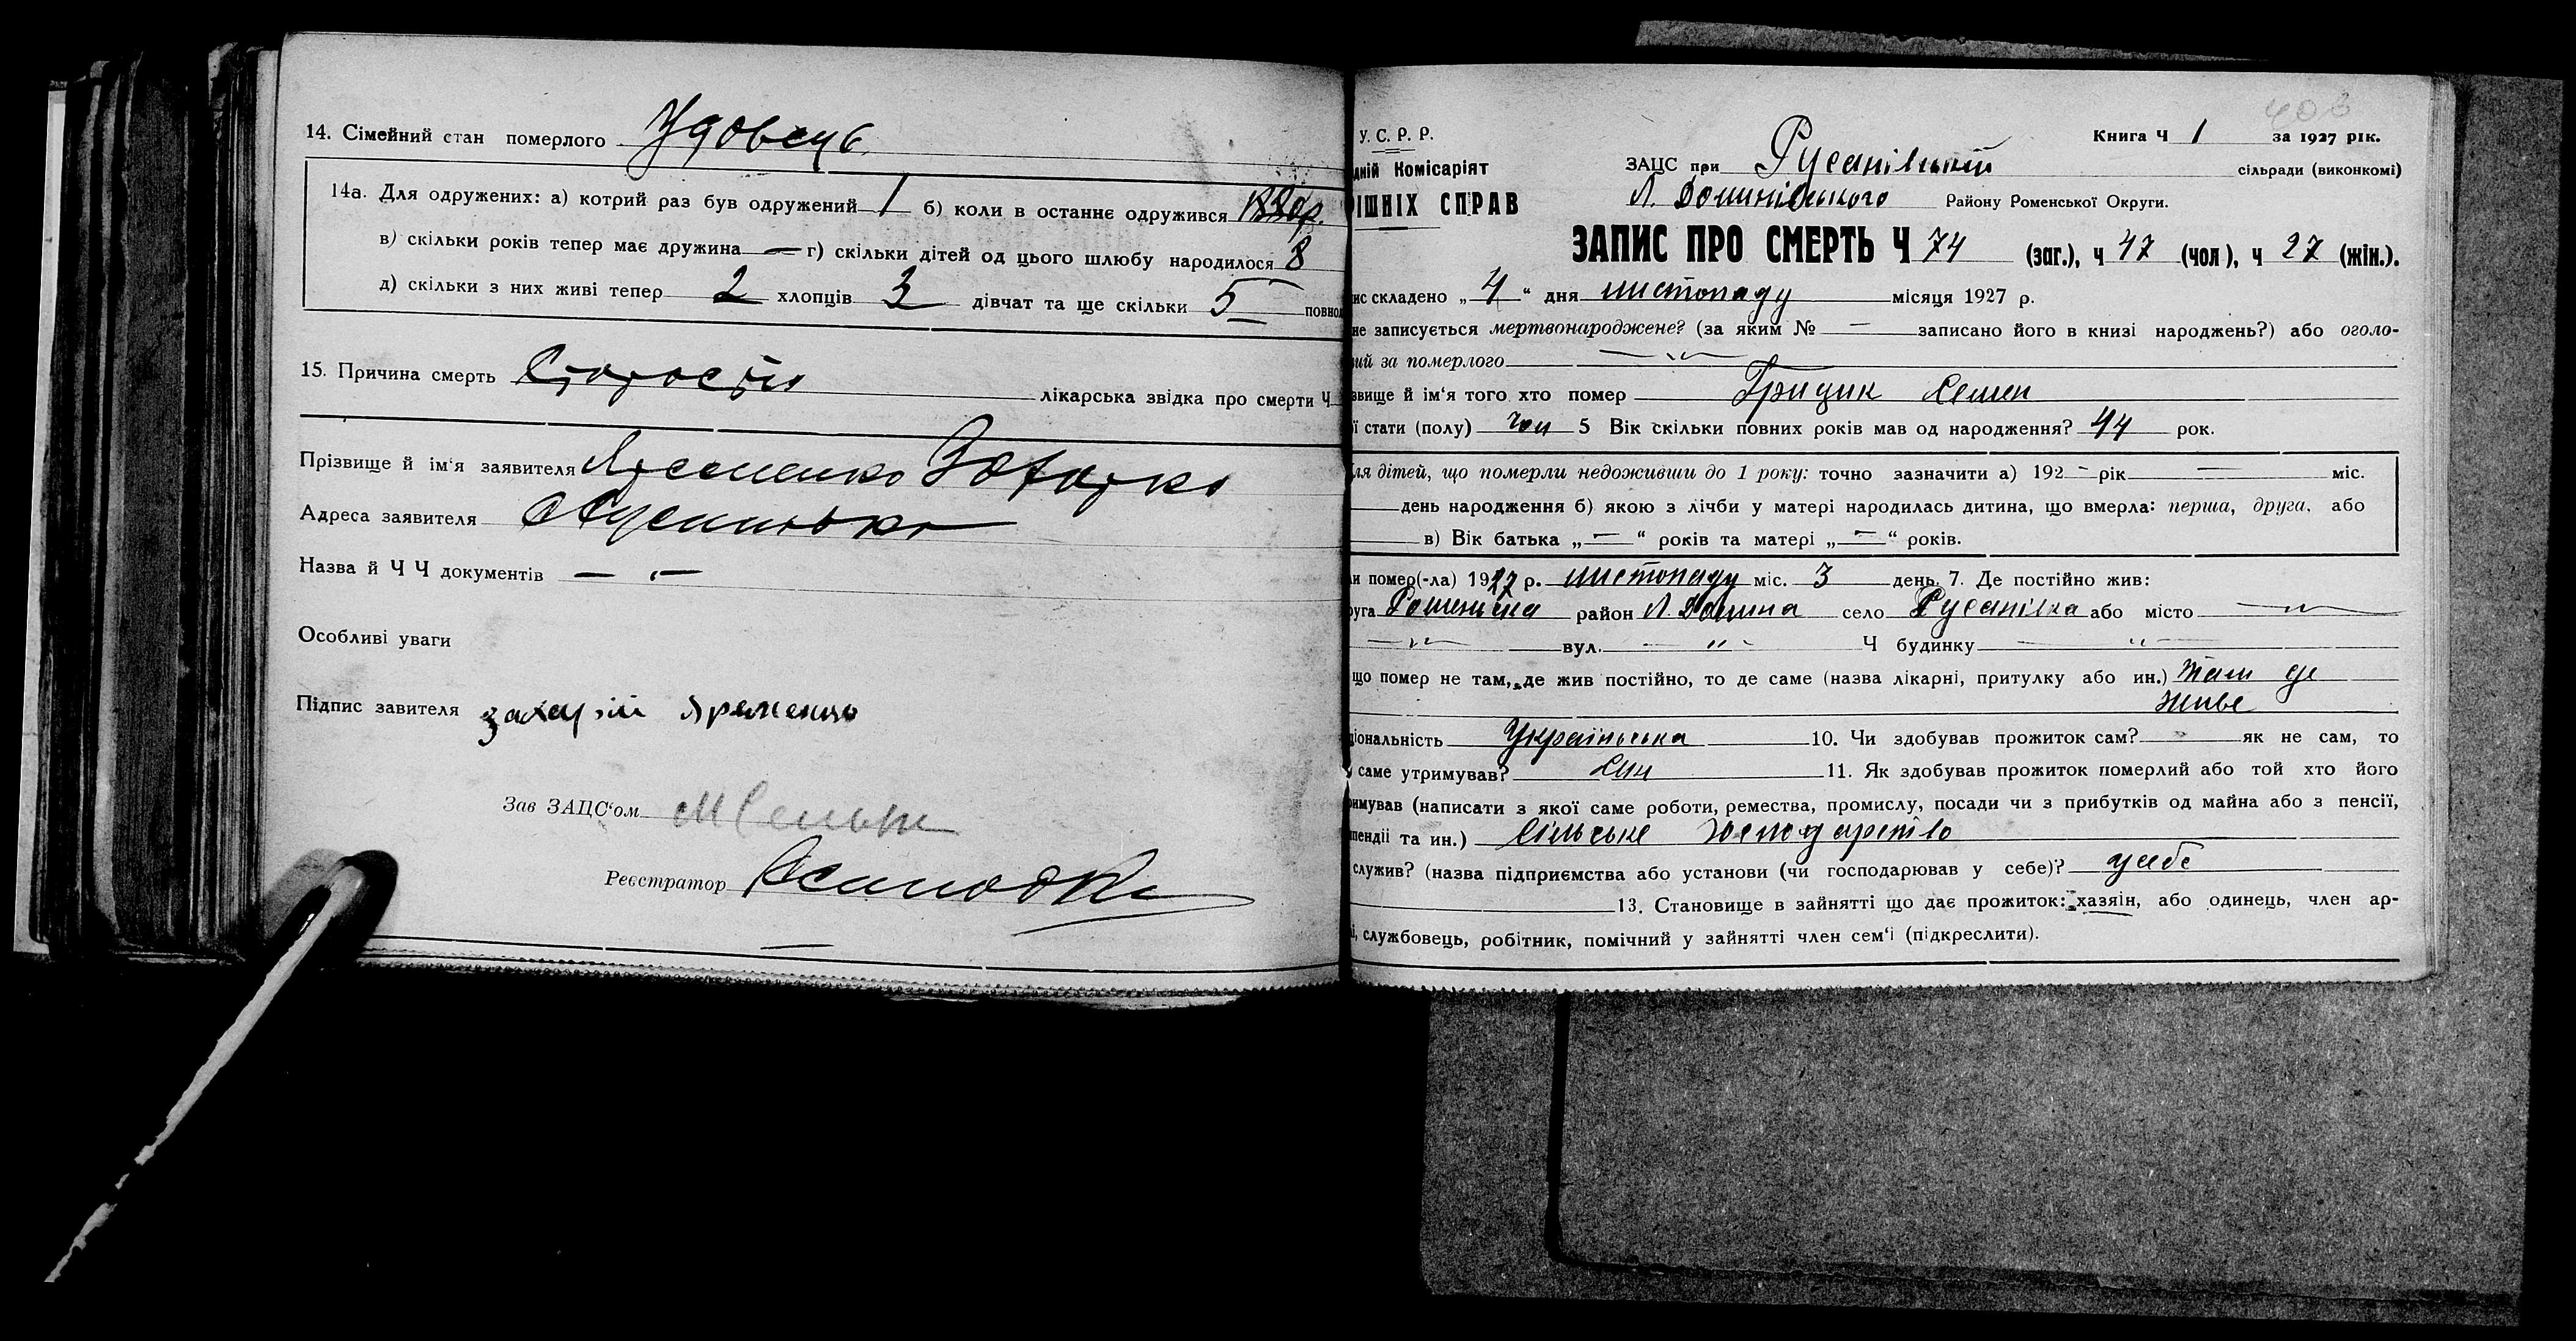 14. Сімейний стан померлого Удовець
14а. Для одружених: а) котрий раз був одружений 1 б) коли в останнє одружився
в) скільки років тепер має дружина — г) скільки дітей од цього шлюбу народилося 8
д) скільки з них живі тепер 2 хлопців 3 дівчат та ще скільки 5 повнол
15. Причина смерть Старости лікарська звідка про смерти Ч
Прізвище й ім'я заявителя Яременко Захарко
Адреса заявителя с Русанівка
Назва й Ч Ч документів — „ —
Особливі уваги
Підпис завителя Захарій Яременко
Зав ЗАЦС'ом
Реєстратор
403
У. С. Р. Р.
дній Комісаріят
ІШНІХ СПРАВ
Книга Ч 1 за 1927 рік.
ЗАЦС при Русанівській сільради (виконкомі)
Л. Долинського Району Роменської Округи.
ЗАПИС ПРО СМЕРТЬ Ч 74 (заг.), ч 47 (чол), ч 27 (жін.).
ис складено „ 4 " дня листопаду місяця 1927 р.
не записується мертвонароджене? (за яким № — записано його в книзі народжень?) або оголо-
ий за померлого — „ —
звище й ім'я того хто помер Грицик Семен
ї стати (полу) чол 5 Вік скільки повних років мав од народження? 44 рок.
ля дітей, що померли недоживши до 1 року: точно зазначити а) 192 — рік — міс.
день народження б) якою з лічби у матері народилась дитина, що вмерла: перша, друга, або
в) Вік батька „ — " років та матері „ — " років.
и помер(-ла) 1927 р. листопаду міс. 3 день. 7. Де постійно жив:
руга Роменська район Л. Долина село Русанівка або місто — „ —
— „ — вул. — „ — Ч будинку — „ —
що помер не там, де жив постійно, то де саме (назва лікарні, притулку або ин.) там де
живе
ціональність Українська 10. Чи здобував прожиток сам? — як не сам, то
саме утримував? син 11. Як здобував прожиток померлий або той хто його
римував (написати з якої саме роботи, ремества, промислу, посади чи з прибутків од майна або з пенсії,
пендії та ин.) сільське господарство
служив? (назва підприємства або установи (чи господарював у себе)? у себе
13. Становище в зайнятті що дає прожиток: хазяін, або одинець, член ар-
і, службовець, робітник, помічний у зайнятті член сем'і (підкреслити).